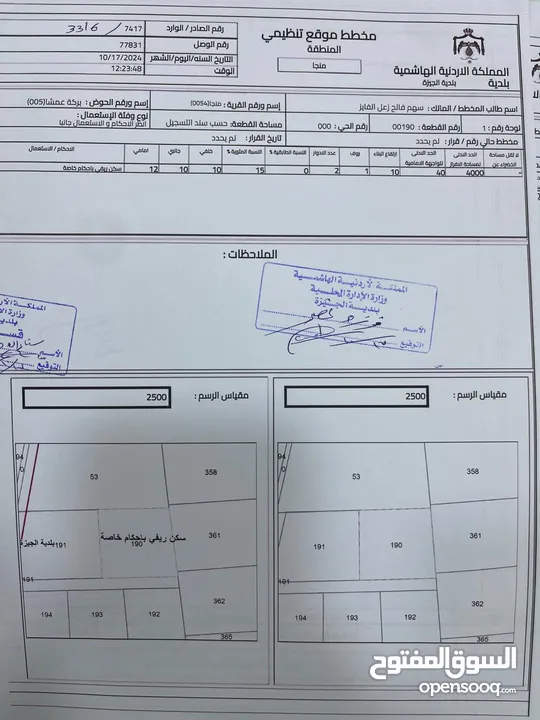 المملكة الاردنية الهاشمية
بلدية
بلدية الجيزة
مخطط موقع تنظيمي
المنطقة
منجا
رقم الصادر / الوارد 7417 / 3316
رقم الوصل 77831
التاريخ السنه/اليوم/الشهر 10/17/2024
الوقت 12:23:48
اسم طالب المخطط / المالك : سهم فالح زعل الفايز
إسم ورقم القرية : منجا(0054)
إسم ورقم الحوض : بركة عمشا(005)
لوحة رقم : 1
رقم القطعة : 00190
رقم الحي : 000
مساحة القطعة: حسب سند التسجيل
نوع وفئة الإستعمال :
انظر الاحكام و الاستعمال جانبا
مخطط حالي رقم / قرار : لم يحدد
تاريخ القرار : لم يحدد
لا تقل مساحة الخضراء عن
الحد الادنى لمساحة الافراز
الحد الادنى للواجهة الامامية
ارتفاع البناء
روف
عدد الادوار
النسبة الطابقية %
النسبة المئوية %
خلفي
جانبي
امامي
الاحكام / الاستعمال
- 4000 40 10 1 2 0 15 10 10 12 سكن ريفي باحكام خاصة
الملاحظات :
المملكة الأردنية الهاشمية
وزارة الإدارة المحلية
بلدية الجيزة
الأسم
التوقيع
المملكة الأر
وزارة
بلدية
الأسم
التوقيع
مقياس الرسم : 2500
مقياس الرسم : 2500
94
0
53
358
191
190
361
191
194
193
192
362
365
94
0
53
358
بلدية الجيزة
191
سكن ريفي بإحكام خاصة
190
361
191
194
193
192
362
365
السوق المفتوح
opensooq.com